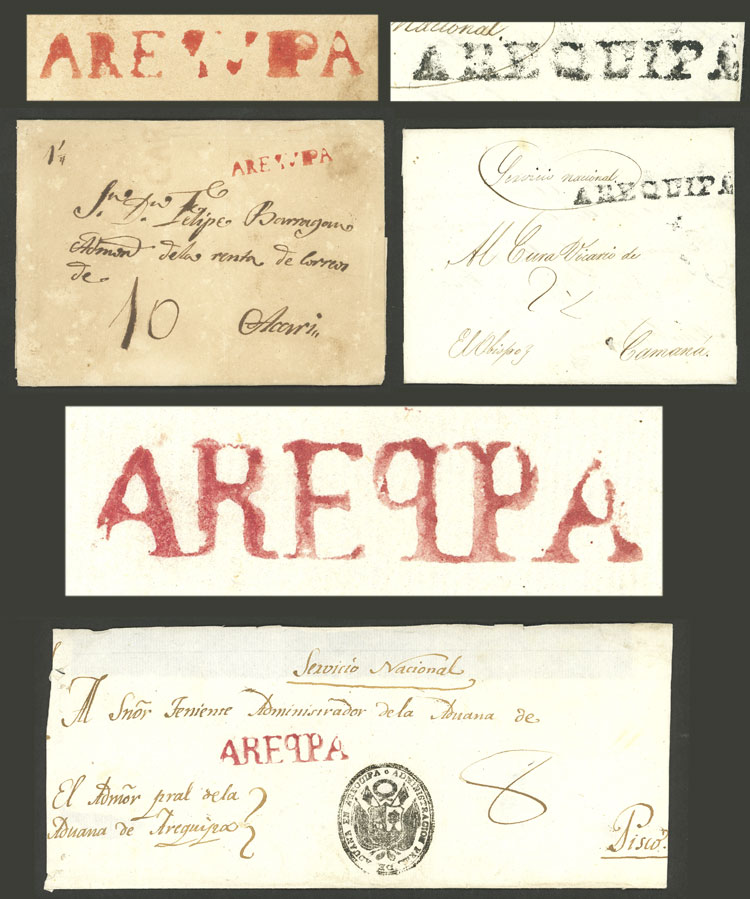 AREQUIPA
nacional.
AREQUIPA
1/4
AREQUIPA
Sr. Dn. Felipe Barragan
Admor de la renta de Correos
de
10
Acari
Servicio nacional.
AREQUIPA
Al Cura Vicario de
El Obispo
Camaná.
AREQPA
Servicio Nacional
Al Señor Teniente Administrador de la Aduana de
AREQPA
El Admor pral de la
Aduana de Arequipa
ADMINISTRACION PRAL DE ADUANA EN AREQUIPA
8
Pisco.